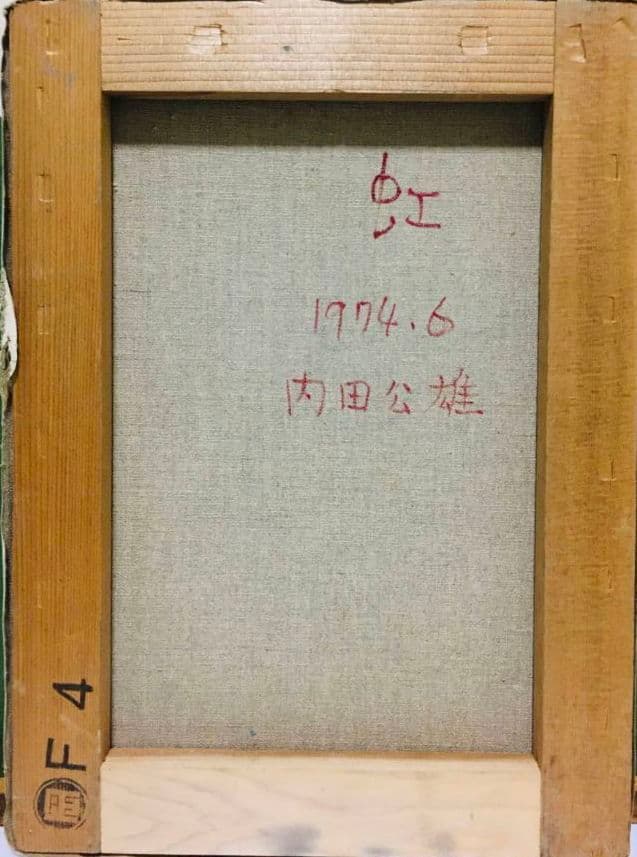 虹
1974.6
内田公雄
F4